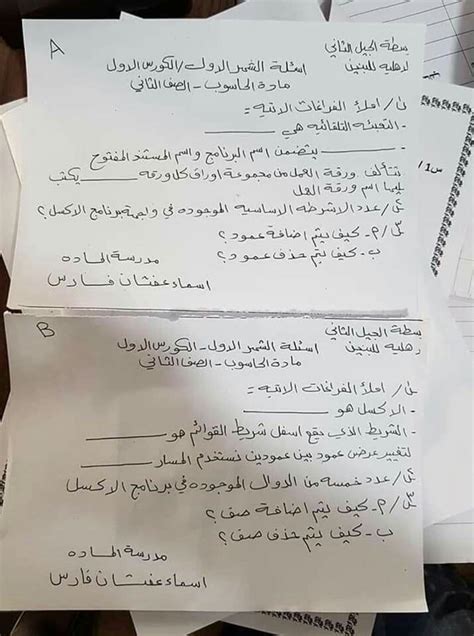 A
متوسطة الجيل الثاني
الاهلية للبنين
اسئلة الشهر الاول/الكورس الاول
مادة الحاسوب - الصف الثاني
س١/ املأ الفراغات الاتية :-
- التعبئة التلقائية هي ــــــــ
- ــــــــ يتضمن اسم البرنامج واسم المستند المفتوح
تتألف ورقة العمل من مجموعة اوراق كل ورقة ــــــــ يكتب
عليها اسم ورقة العمل
س٢/ عدد الاشرطة الاساسية الموجودة في واجهة برنامج الاكسل؟
س٣/ م- كيف يتم اضافة عمود؟
ب- كيف يتم حذف عمود؟
مدرسة المادة
اسماء عفشان فارس
س1/
B
متوسطة الجيل الثاني
الاهلية للبنين
اسئلة الشهر الاول - الكورس الاول
مادة الحاسوب - الصف الثاني
س١/ املأ الفراغات الاتية :-
- الاكسل هو ــــــــ
- الشريط الذي يقع اسفل شريط القوائم هو ــــــــ
لتغيير عرض عمود بين عمودين نستخدم المسار ــــــــ
س٢/ عدد خمسة من الدوال الموجودة في برنامج الاكسل
س٣/ م- كيف يتم اضافة صف؟
ب- كيف يتم حذف صف؟
مدرسة المادة
اسماء عفشان فارس